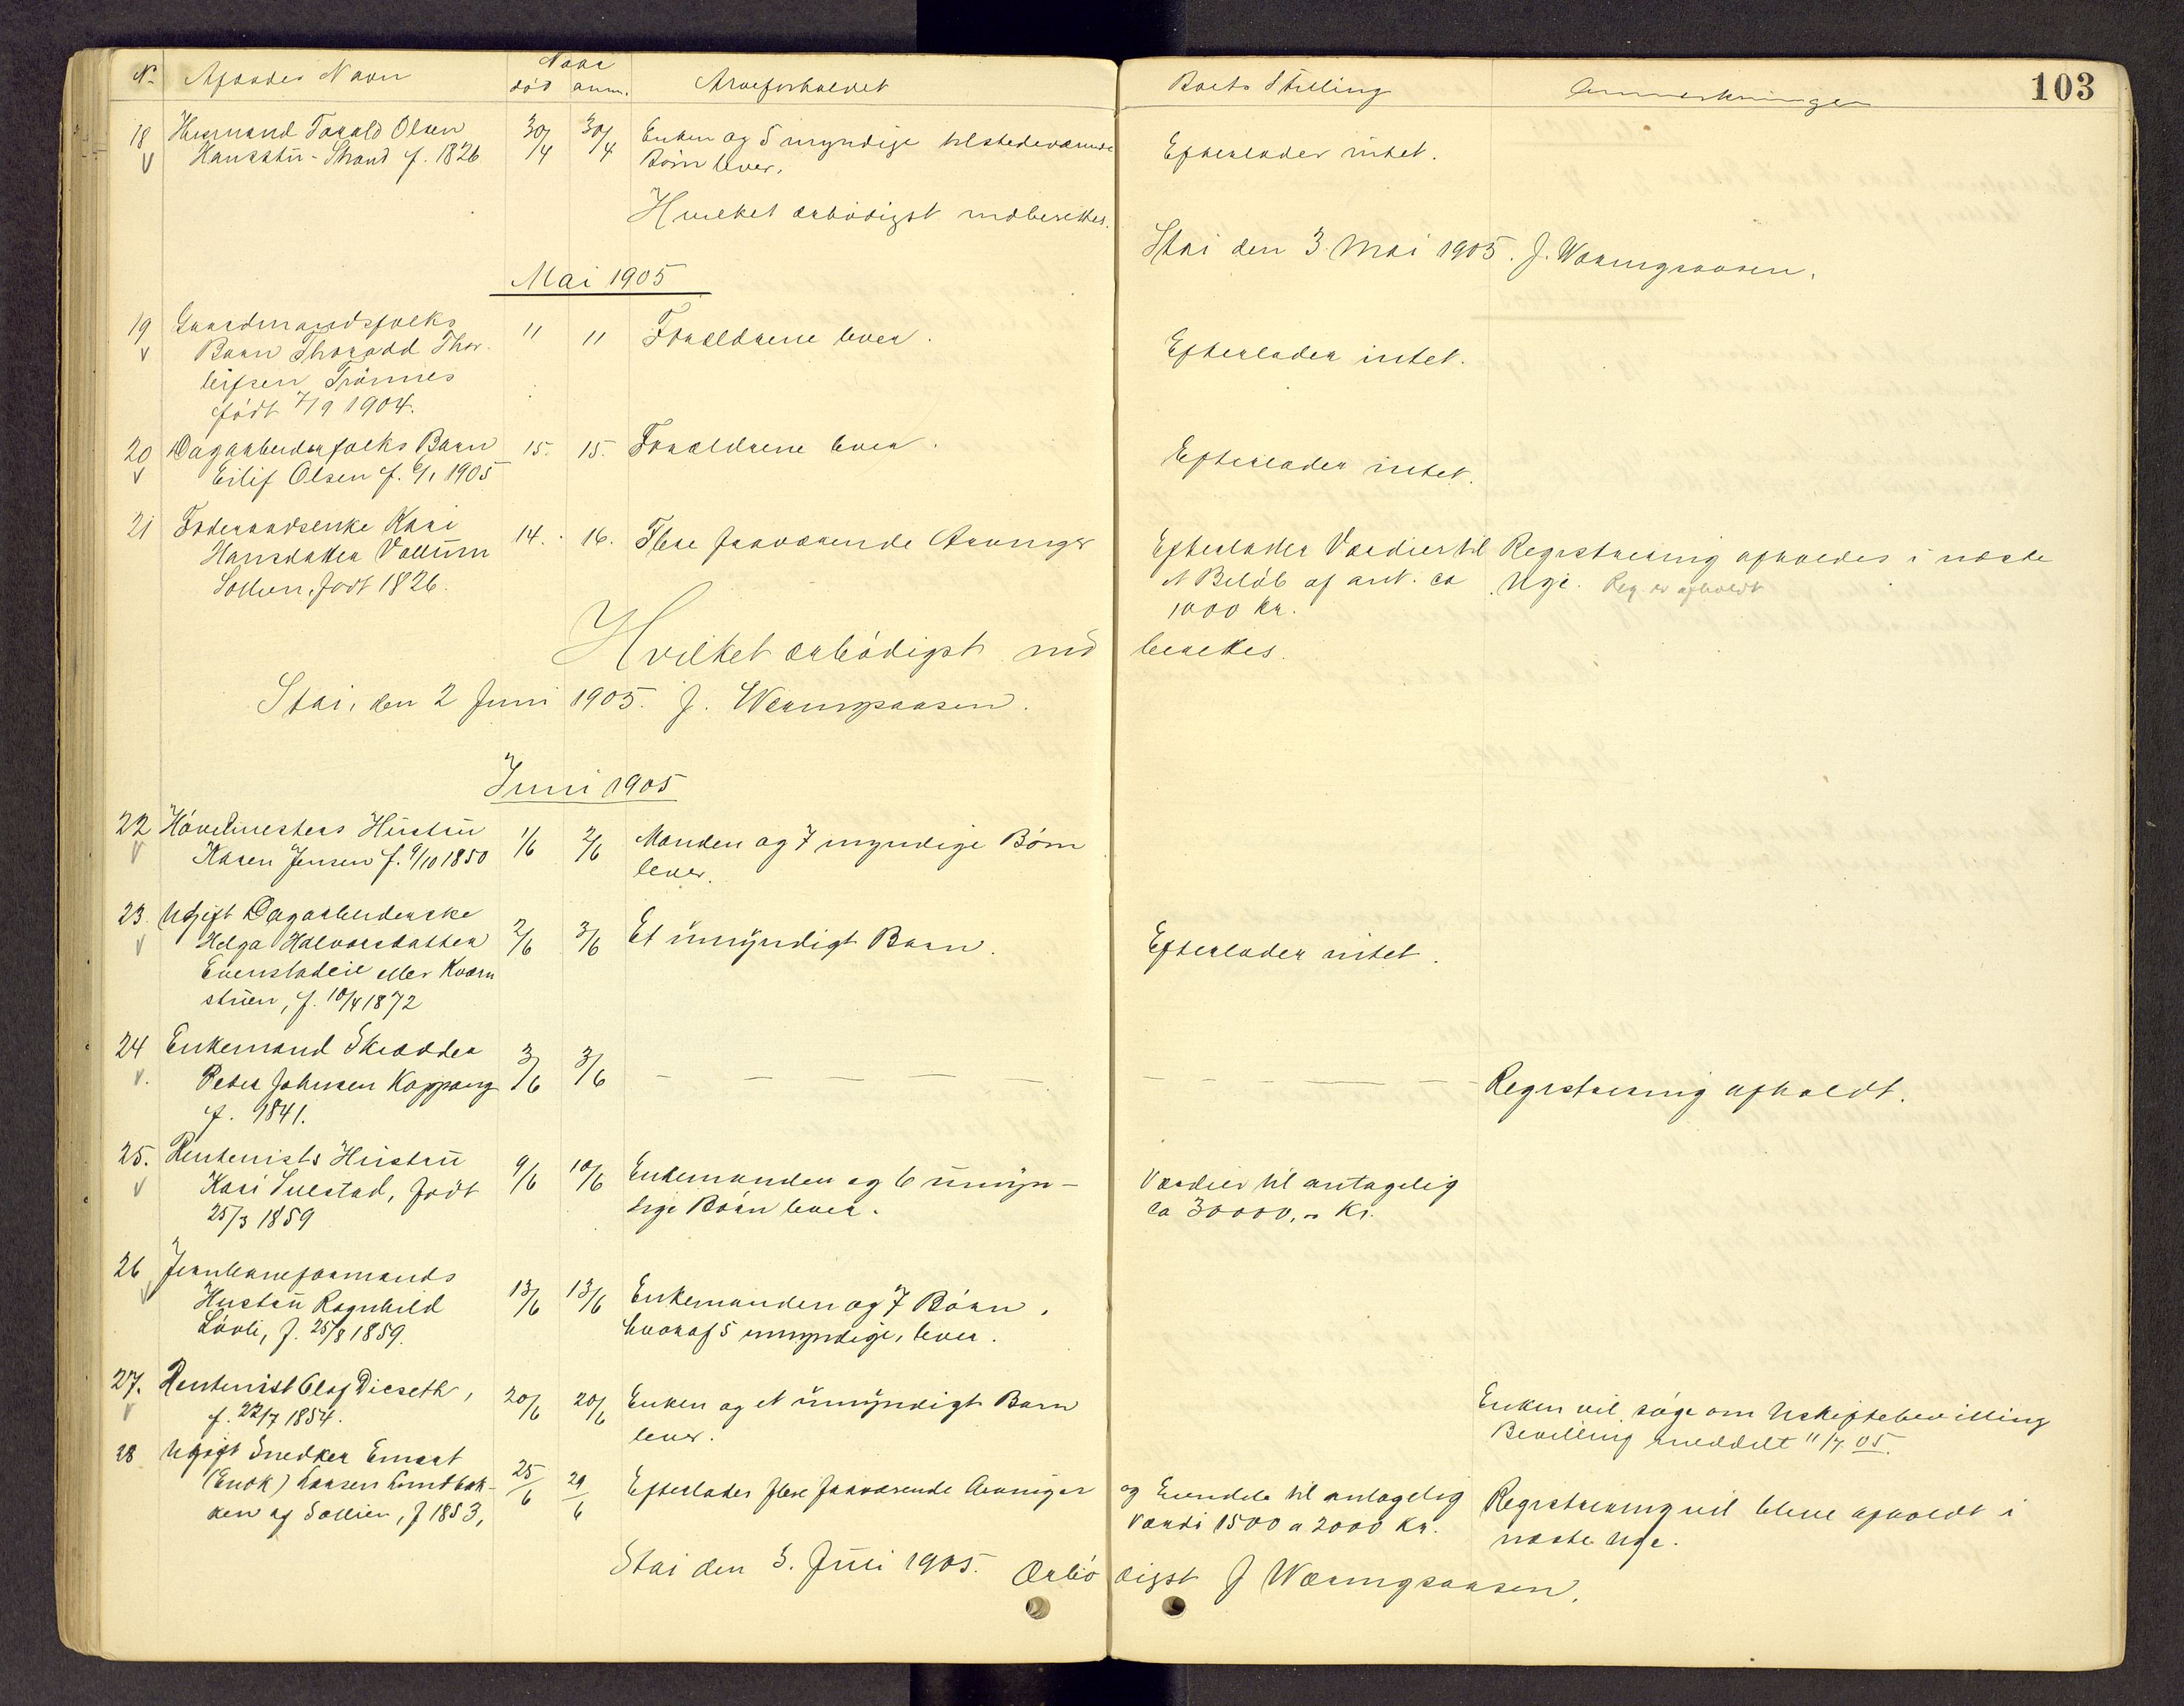 103
N. Afdødes Navn Naar død anm. Arveforholdet Boets Stilling Anmerkninger
18 Husmand Torald Olsen 30/4 30/4 Enken og 5 myndige tilstedeværende Efterlader intet.
V Hansstu-Strand f. 1826 Børn lever.
Hvilket ærbødigst indberettes.
Stai den 3 Mai 1905. J. Wæringsaasen.
Mai 1905
19 Gaardmandsfolks 11 11 Forældrene lever. Efterlader intet.
V Barn Thorodd Thor-
leifsen Trønnes
født 7/9 1904.
20 Dagarbeiderfolks Barn 15. 15. Forældrene lever. Efterlader intet.
V Eilif Olsen f. 6/1 1905
21 Føderaadsenke Kari 14. 16. Flere fraværende Arvinger Efterlader Værdier til Registrering afholdes i næste
Hansdatter Vollum et Beløb af ant. ca Uge. Reg. er afholdt
Sollien, født 1826. 1000 Kr.
Hvilket ærbødigst indberettes.
Stai, den 2 Juni 1905. J. Wæringsaasen.
Juni 1905
22 Høvelmesters Hustru 1/6 2/6 Manden og 7 myndige Børn
V Karen Jensen f. 9/10 1850 lever.
23. Ugift Dagarbeiderske 2/6 3/6 Et umyndigt Barn. Efterlader intet.
V Helga Halvorsdatter
Evenstadeie eller Kværn
stuen, f. 10/4 1872
24 Enkemand Skrædder 3/6 3/6 — — — — — — — — — — Registrering afholdt.
V. Peder Johnsen Koppang
f. 1841.
25. Rentenists Hustru 9/6 10/6 Enkemanden og 6 umyn- Værdier til antagelig
V Kari Sulstad, født dige Børn lever. ca 30000,- Kr.
25/3 1859
26 Jernbaneformands 13/6 13/6 Enkemanden og 7 Børn,
V Hustru Ragnhild hvoraf 5 umyndige, lever.
Løvli, f. 25/8 1859.
27. Rentenist Olaf Dieseth, 20/6 20/6 Enken og et umyndigt Barn Enken vil søge om Uskiftebevilling
V f. 22/7 1854. lever. Bevilling meddelt 11/7. 05.
28 Ugift Snedker Ernst 25/6 29/6 Efterlader flere fraværende Arvinger og Eiendele til antagelig Registrering vil blive afholdt i
(Enok) Larsen Lundbak- Værdi 1500 a 2000 Kr. næste Uge.
ken af Sollien, f 1853,
Stai den 3. Juli 1905. Ærbødigst J Wæringsaasen.